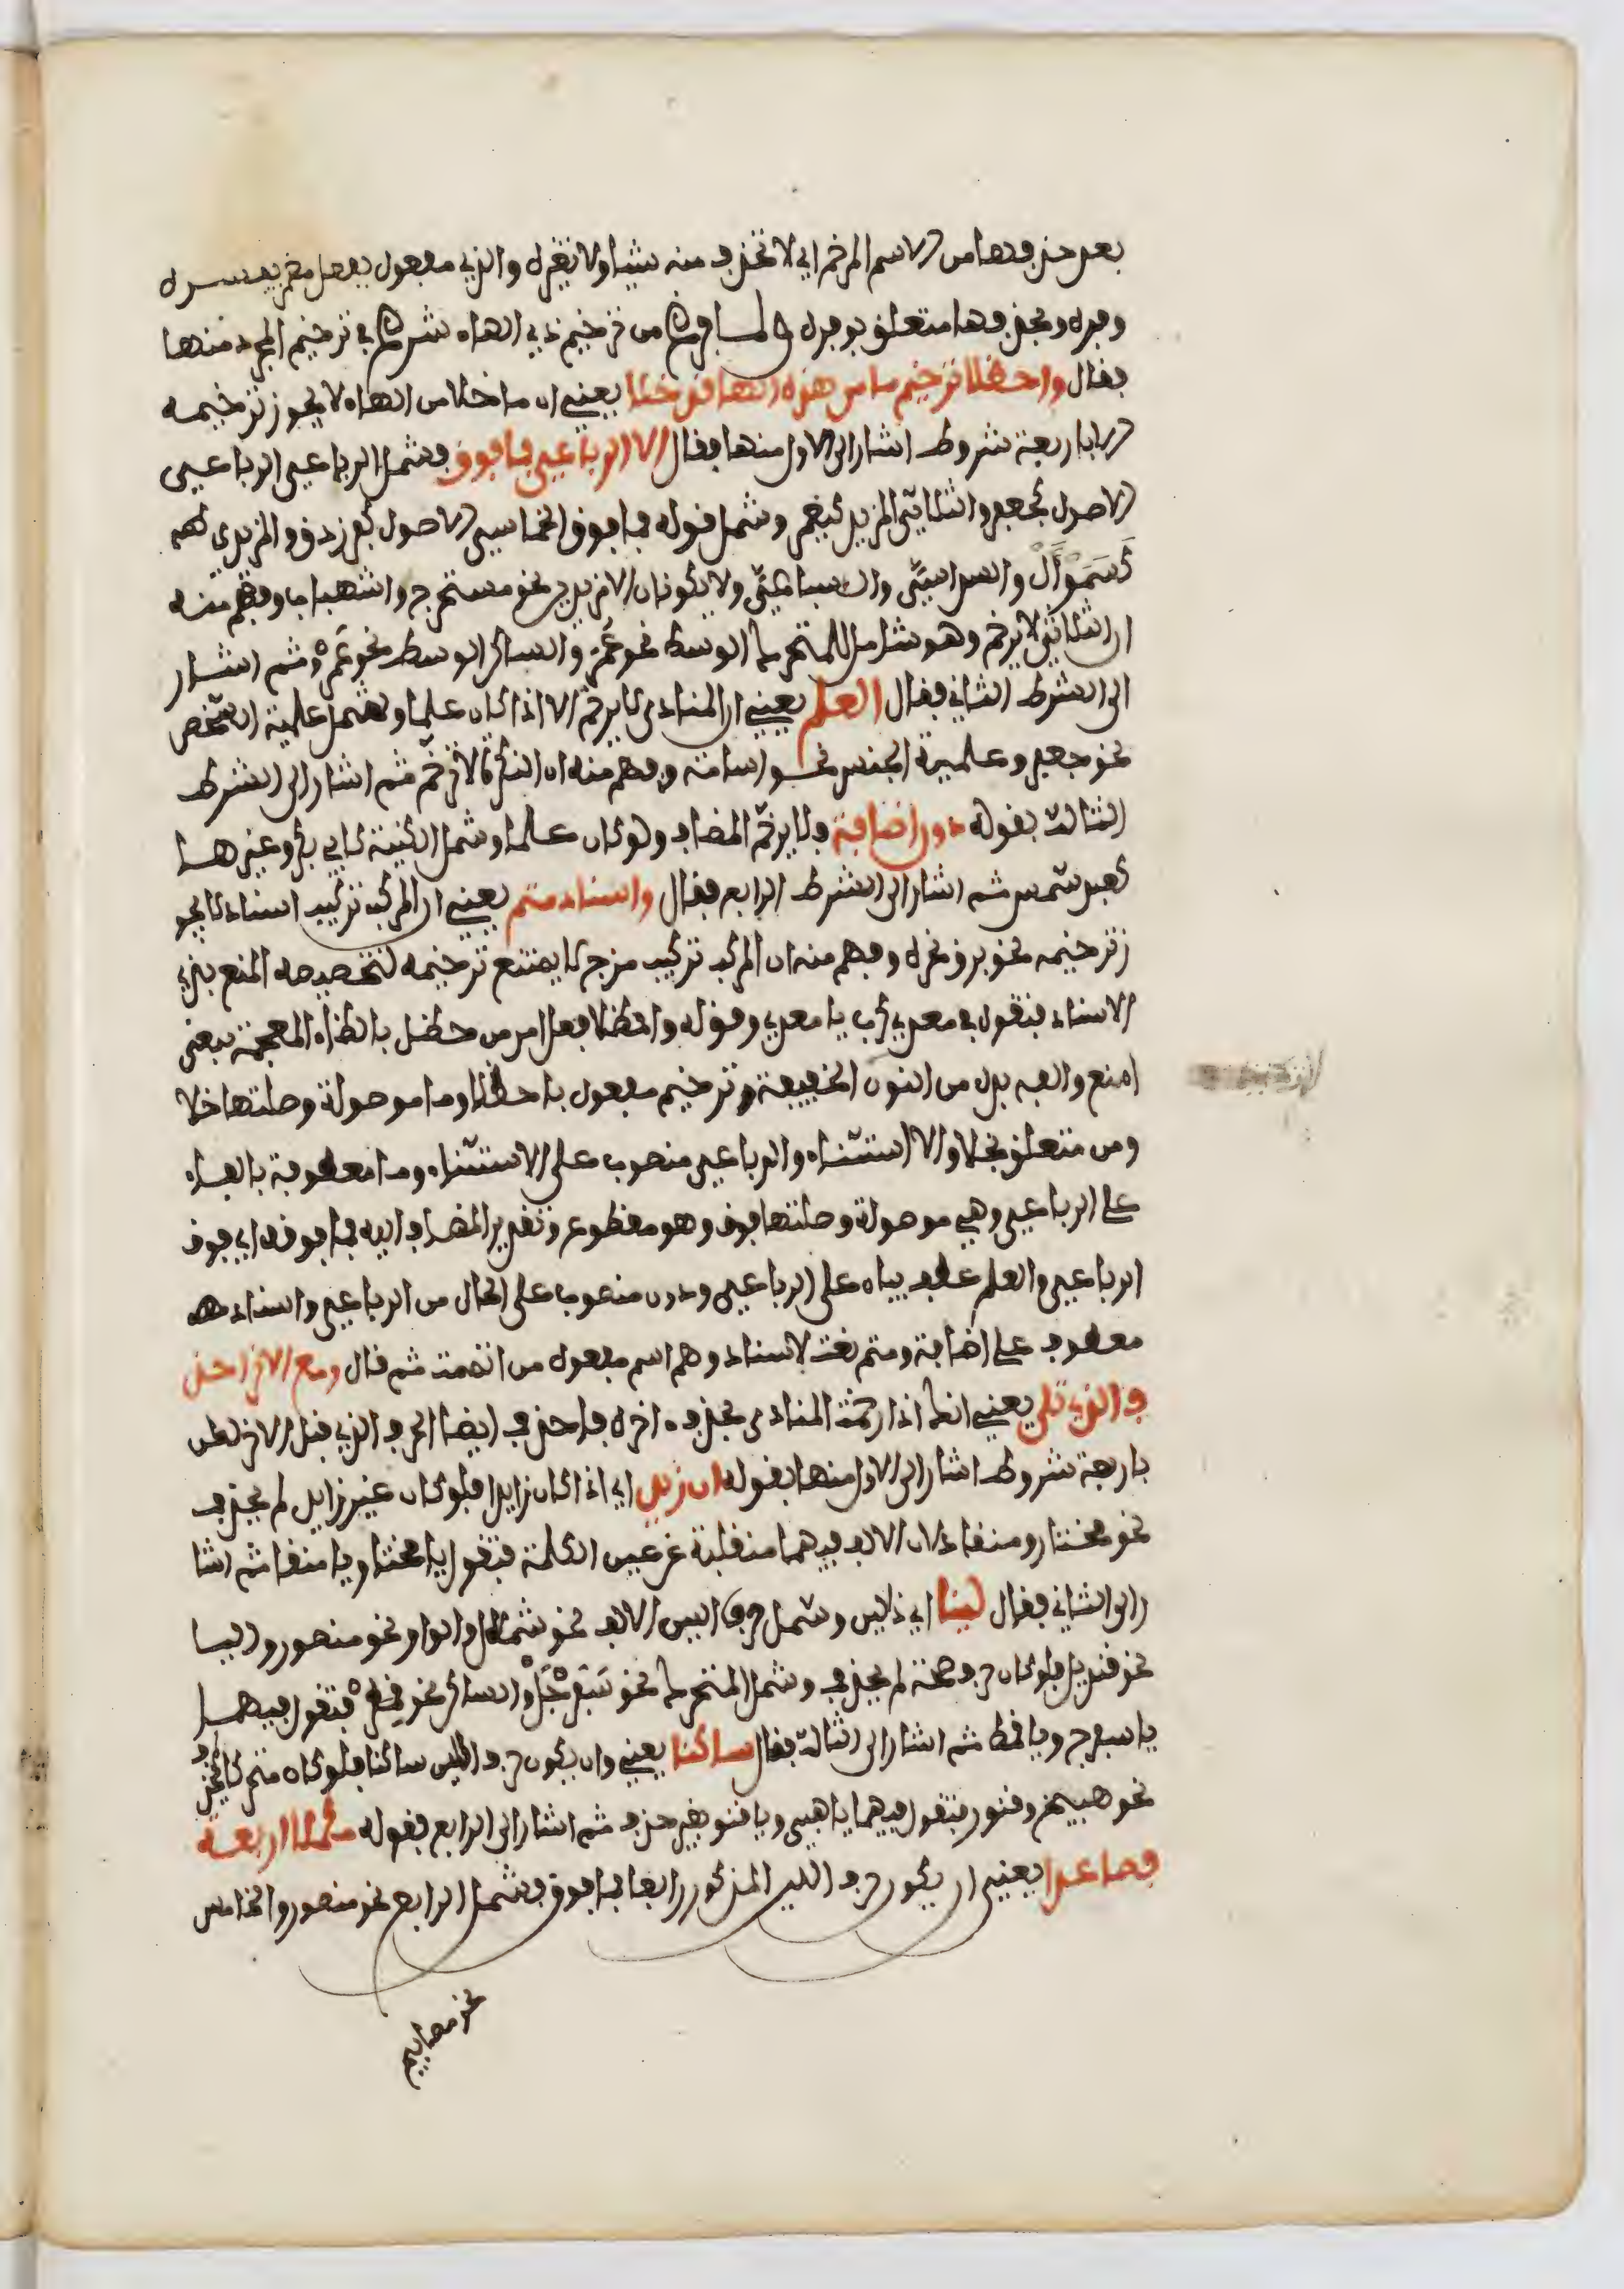 بعد حذفها من الاسم المرخم اي لا تحذف منه شيا ولا تغيره والذي مفعول بفعل مضمر يفسره
وفره وبحذفها متعلق بوفره ولما فرغ من ترخيم ذي الهاء شرع في ترخيم المجرد منها
فقال واحظلا ترخيم ما من هذه الها قد خلا يعني ان ما خلا من الهاء لا يجوز ترخيمه
الا باربعة شروط اشار الى الاول منها فقال الا الرباعي فما فوق فشمل الرباعي الرباعي
الاصول كجعفر والثلاثي المزيد كيغمر وشمل قوله فما فوق الخماسي الاصول كفرزدق والمزيد فيه
كسموأل والسداسي والسباعي ولا يكونان الا مزيدين نحو مستخرج واشهباب وفهم منه
ان الثلاثي لا يرخم وهو شامل للمتحرك الوسط نحو عمر والساكن الوسط نحو عمرو ثم اشار
الى الشرط الثاني فقال العلم يعني ان المنادى لا يرخم الا اذا كان علما وشمل علمية الشخص
نحو جعفر وعلمية الجنس نحو اسامة وفهم منه ان النكرة لا ترخم ثم اشار الى الشرط
الثالث بقوله دون اضافة فلا يرخم المضاف ولو كان علما وشمل الكنية كابي بكر وغيرها
كعبد شمس ثم اشار الى الشرط الرابع فقال واسناد متم يعني ان المركب تركيب اسناد لا يجو
ز ترخيمه نحو برق نحره وفهم منه ان المركب تركيب مزج لا يمتنع ترخيمه لتخصيصه المنع بذي
الاسناد فتقول في معدي كرب يا معدي وقوله واحظلا فعل امر من حظل بالظاء المعجمة بمعنى
امنع والفه بدل من النون الخفيفة وترخيم مفعول باحظلا وما موصولة وصلتها خلا
ومن متعلق بخلا والا استثناء والرباعي منصوب على الاستثناء وما معطوفة بالفاء
على الرباعي وهي موصولة وصلتها فوق وهو مقطوع وتقدير المضاف اليه فما فوقه اي فوق
الرباعي والعلم عطف بيان على الرباعي ودون منصوب على الحال من الرباعي واسناد
معطوف على اضافة ومتم نعت لاسناد وهو اسم مفعول من اتممت ثم قال ومع الاخر احذ
ف الذي تلا يعني انك اذا رخمت المنادى بحذف اخره فاحذف ايضا الحرف الذي قبل الاخر لكن
باربعة شروط اشار الى الاول منها بقوله ان زيد اي اذا كان زايدا فلو كان غير زايد لم يحذف
نحو مختار ومنقاد لان الالف فيهما منقلبة عن عين الكلمة فتقول يا مختا ويا منقا ثم اشا
ر الى الثاني فقال لينا اي ذا لين وشمل حرف اللين الالف نحو شملال والواو نحو منصور واليا
نحو قنديل فلو كان حرف صحة لم يحذف وشمل المتحرك نحو سفرجل والساكن نحو قمطر فتقول فيهما
يا سفرج ويا قمط ثم اشار الى الثالث فقال ساكنا يعني وان يكون حرف اللين ساكنا فلو كان متحركا لم يحذف
نحو هبيخ وقنور فتقول فيهما يا هبي ويا قنو بغير حذف ثم اشار الى الرابع بقوله مكملا اربعة
فصاعدا يعني ان يكون حرف اللين المذكور رابعا فما فوق فشمل الرابع نحو منصور والخامس
نحو مصابيح